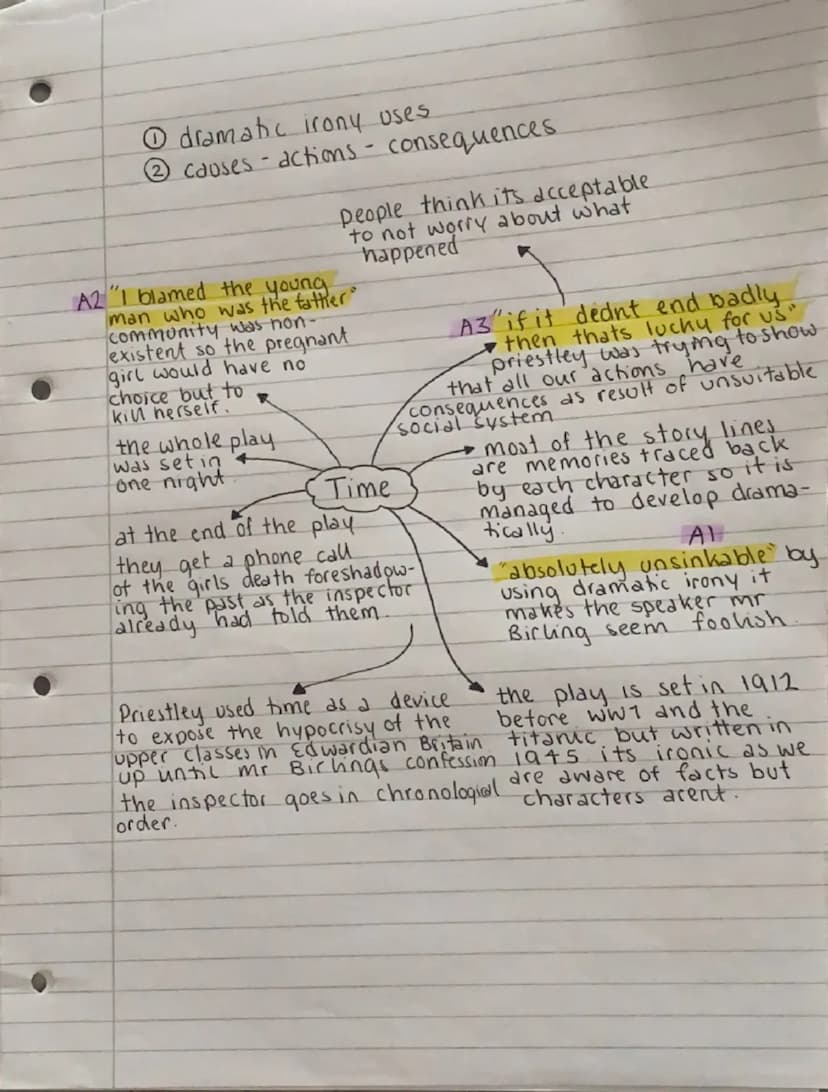 ① dramatic irony uses
② causes - actions - consequences
people think its acceptable
to not worry about what
happened
A2 "I blamed the young
man who was the father"
community was non-
existent so the pregnant
girl would have no
choice but to
kill herself.
A3 "if it dednt end badly
then thats lucky for us"
priestley was trying to show
that all our actions have
consequences as result of unsuitable
social system
the whole play
was set in
one night
Time
most of the story lines
are memories traced back
by each character so it is
managed to develop drama-
tically.
at the end of the play
they get a phone call
of the girls death foreshadow-
ing the past as the inspector
already had told them.
A1
"absolutely unsinkable" by
using dramatic irony it
makes the speaker mr
Birling seem foolish.
Priestley used time as a device
to expose the hypocrisy of the
upper classes in Edwardian Britain
up until mr Birlings confession
the inspector goes in chronological
order.
the play is set in 1912
before WW1 and the
titanic but written in
1945 its ironic as we
are aware of facts but
characters arent.